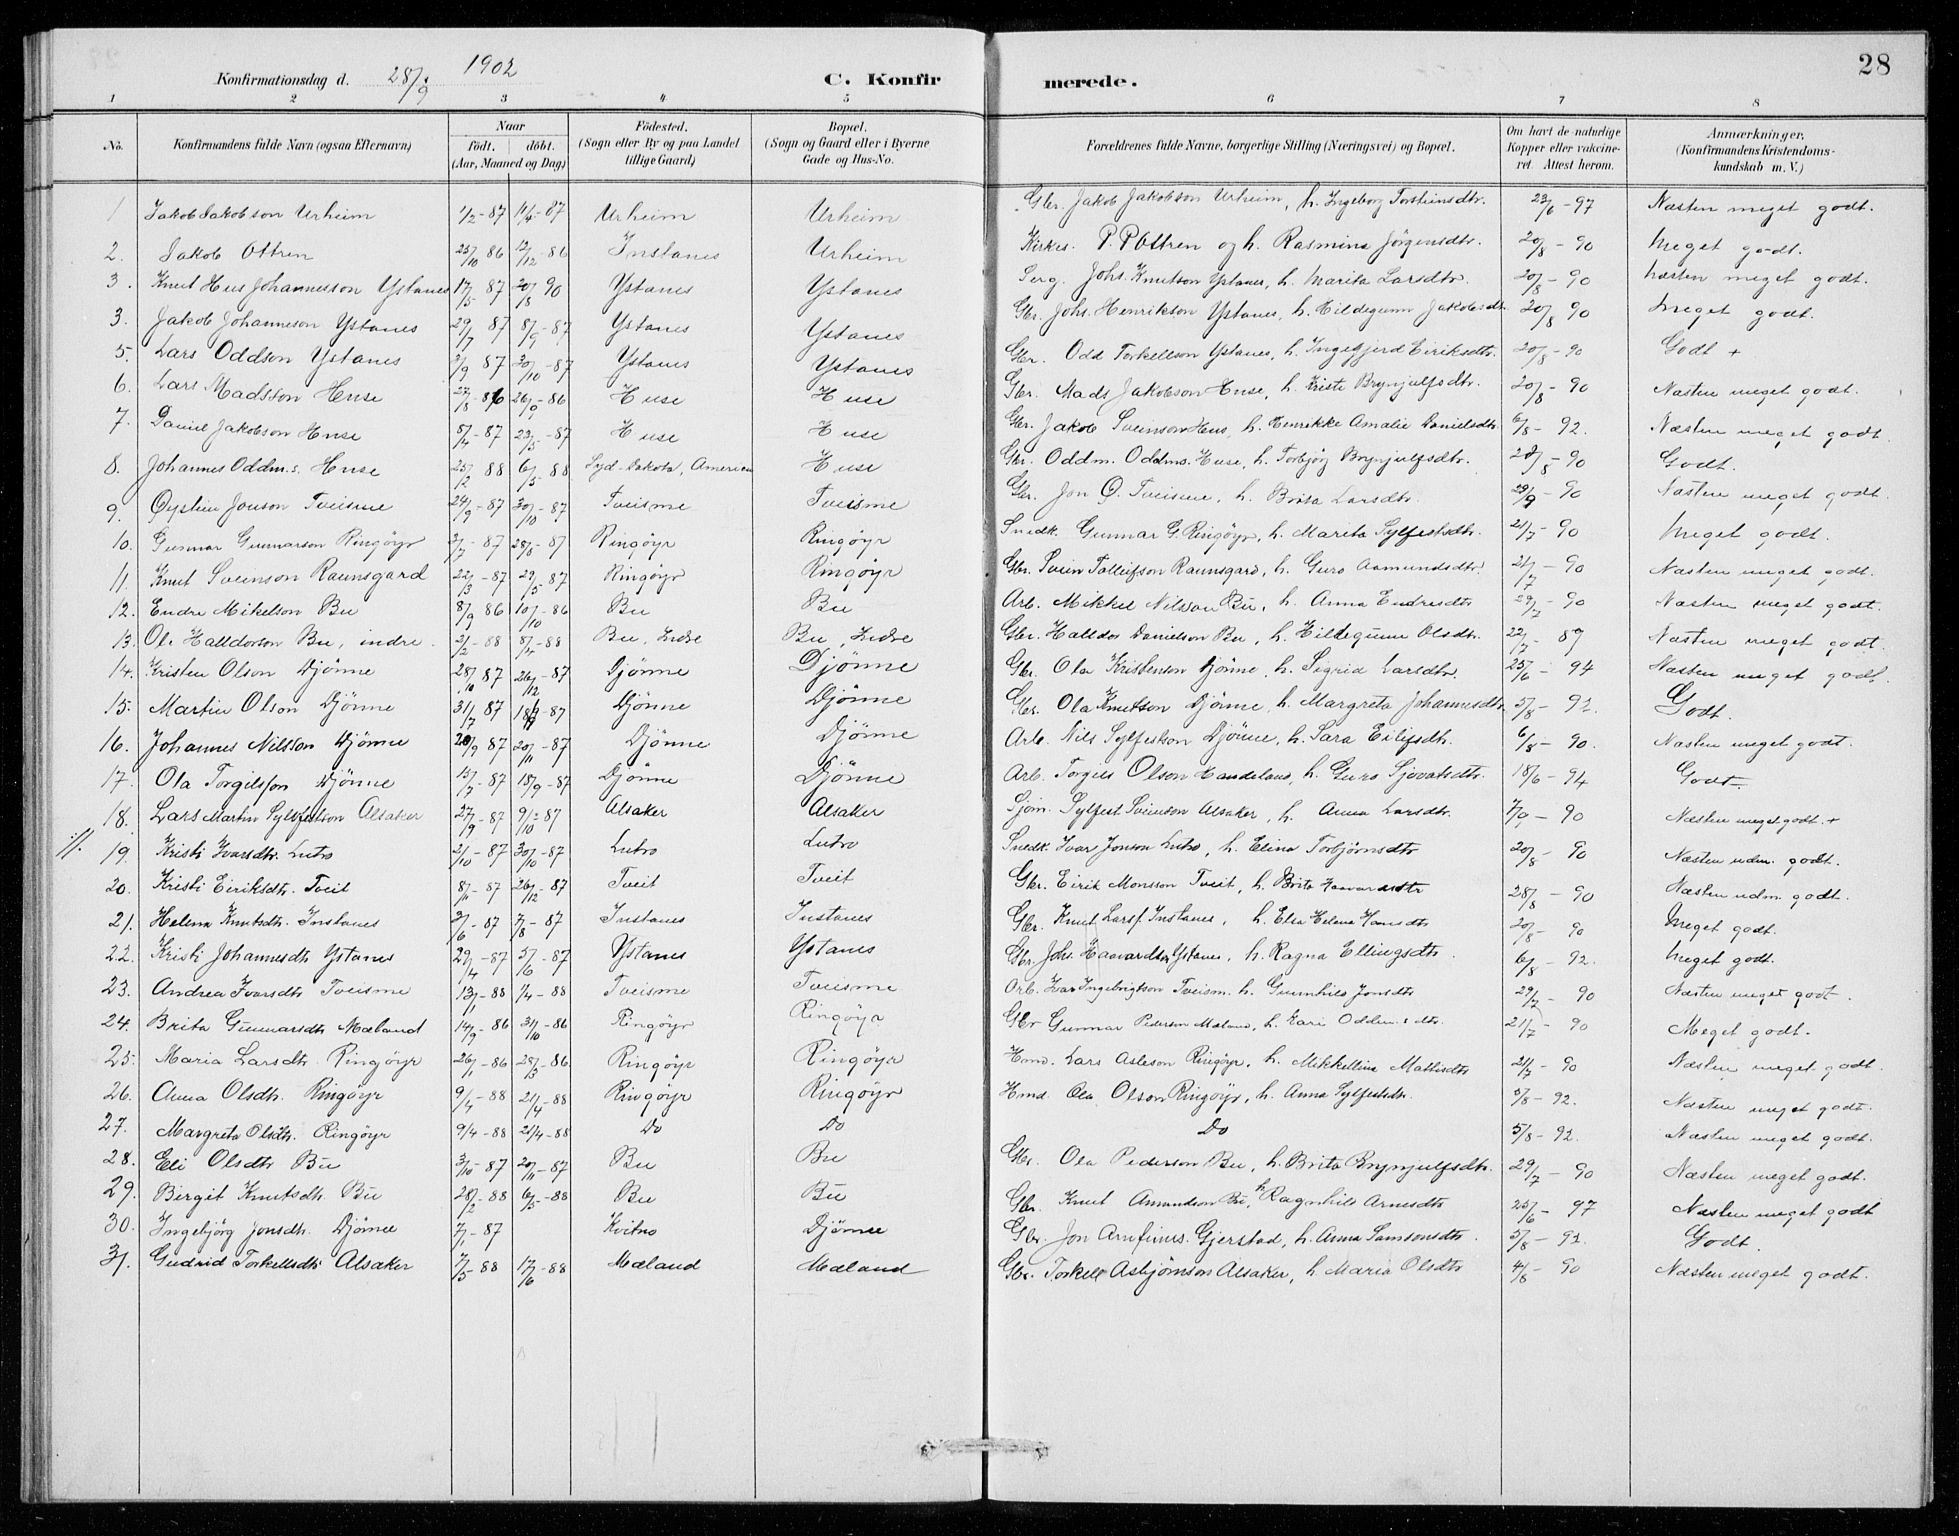 28
Konfirmationsdag d. 28/9 1902 C. Konfirmerede.
1 2 3 4 5 6 7 8
No. Konfirmandens fulde Navn (ogsaa Efternavn) Naar født. døbt. (Aar, Maaned og Dag) Födested. (Sogn eller By og paa Landet tillige Gaard) Bopæl. (Sogn og Gaard eller i Byerne Gade og Hus-No. Forældrenes fulde Navne, borgerlige Stilling (Næringsvei) og Bopæl. Om havt de naturlige Kopper eller vakcineret. Attest herom. Anmærkninger, (Konfirmandens Kristendomskundskab m. V.)
1 Jakob Jakobson Urheim 1/2-87 11/4-87 Urheim Urheim Gbr. Jakob Jakobson Urheim, h. Ingeborg Torsteinsdtr. 23/6-97 Næsten meget godt.
2. Jakob Ottren 25/10 86 12/12-86 Instanes Urheim Kirkes. P. P Ottren og h. Rasmina Jörgensdtr. 20/8-90 Meget godt.
3. Knut Hus Johannesson Ystanes 17/5 87 20/8 90 Ystanes Ystanes Serg. Johs. Knutson Ystanes, h. Marita Larsdtr. 20/8-90 næsten meget godt.
3. Jakob Johanneson Ystanes 29/7 87 8/9-87 Ystanes Ystanes Gbr. Johs. Henrikson Ystanes, h. Hildegunn Jakobsdtr. 20/8 90 Meget godt.
5. Lars Oddson Ystanes 2/9 87 30/10-87 Ystanes Ystanes Gbr. Odd Torkellson Ystanes, h. Ingegjerd Eiriksdtr. 20/8-90 Godt +
6. Lars Madsson Huse 27/8-86 26/9-86 Huse Huse Gbr. Mads Jakobson Huse, h. Kristi Brynjulfsdtr. 20/8-90 Næsten meget godt.
7. Daniel Jakobson Huse 5/4-87 23/5-87 Huse Huse Gbr. Jakob Sveinson Hus, h. Henrikke Amalie Danielsdtr. 6/8-92. Næsten meget godt.
8. Johannes Oddm.s. Huse 25/2 88 6/5-88 Syd-Dakota, Amerika Huse Gbr. Oddm. Oddms. Huse, h. Torbjörg Brynjulfsdtr. 20/8-90 Godt.
9. Öystein Jonson Tveisme 24/9-87 30/10-87 Tveisme Tveisme Gbr. Jon Ö. Tveisme, h. Brita Larsdtr. 29/9-90 Næsten meget godt.
10. Gunnar Gunnarson Ringöyr 2/7-87 28/8-87 Ringöyr Ringöyr Snedk. Gunnar G. Ringöyr, h. Marita Sylfestsdtr. 21/7-90 Meget godt.
11. Knut Sveinson Raunsgard 22/3-87 29/5-87 Ringöyr Ringöyr Gbr. Svein Tolleifson Raunsgard, h. Guro Aamundsdtr. 21/7-90 Næsten meget godt.
12. Endre Mikelson Bu 8/9 86 10/10-86 Bu Bu Arb. Mikkel Nilsson Bu, h. Anna Endresdtr 29/7-90 Næsten meget godt.
13. Ole Halldorson Bu, indre. 2/2-88 8/4-88 Bu, Indre Bu, Indre Gbr. Halldor Danielson Bu, h. Hildegunn Olsdtr. 22/7-89 Næsten meget godt.
14. Kristen Olson Djönne 28/10 87 26/12-87 Djönne Djönne Gbr. Ola Kristenson Djönne, h. Sigrid Larsdtr. 25/6-94 Næsten meget godt.
15. Martin Olson Djönne 31/7 87 18/9-87 Djönne Djönne Gbr. Ola Knutson Djönne, h. Margreta Johannesdtr. 5/8-92. Godt.
16. Johannes Nilsson Djönne 20/9 87 20/11-87 Djönne Djönne Arb. Nils Sylfestson Djönne, h. Sara Eilifsdtr. 6/8-90. Næsten meget godt.
17. Ola Torgilsson Djönne 15/7-87 18/9-87 Djönne Djönne Arb. Torgils Olson Handeland, h. Guro Sjovatsdtr. 18/6-94 Godt
18. Lars Martin Sylvfestson Alsaker 27/9-87 9/10-87 Alsaker Alsaker Sjöm. Sylfest Sveinson Alsaker, h. Anna Larsdtr. 7/9-90 Næsten meget godt. +
://. 19. Kristi Ivarsdtr. Lutro 2/10-87 30/10-87 Lutro Lutro Snedk. Ivar Jonson Lutro, h. Elina Torbjörnsdtr 20/8-90 Næsten udm. godt.
20. Kristi Eiriksdtr. Tveit 8/11-87 26/12-87 Tveit Tveit Gbr. Eirik Monsson Tveit, h. Brita Haavardsdtr 28/8-90 Næsten udm. godt.
21. Helena Knutsdtr. Instanes 2/6-87 7/8-87 Instanes Instanes Gbr. Knut Larsf. Instanes, h. Elsa Helena Hansdtr 20/8-90 Meget godt.
22. Kristi Johannesdtr Ystanes 29/4-87 5/6-87 Ystanes Ystanes Gbr. Johs. Haavardson Ystanes, h. Ragna Ellingsdtr. 6/8-92. Meget godt.
23. Andrea Ivarsdtr Tveisme 13/1-88 1/4-88 Tveisme Tveisme Arb. Ivar Ingebrigtson Tveism. h. Gunnhild Jonsdtr 29/7-90 Næsten meget godt.
24. Brita Gunnarsdtr Mæland 14/9-86 31/10-86 Ringöyr Ringöyr Gbr Gunnar Pederson Mæland, h. Kari Oddm.sdtr. 21/7-90 Meget godt.
25. Maria Larsdtr. Ringöyr 26/1-86 28/3-86 Ringöyr Ringöyr Hmd. Lars Asleson Ringöyr, h. Mikkelline Mattisdtr 21/7-90 Næsten meget godt.
26. Anna Olsdtr. Ringöyr 9/4-88 21/4-88 Ringöyr Ringöyr Hmd. Ola Olson Ringöyr, h. Anna Sylfestsdtr. 5/8-92. Næsten meget godt.
27. Margreta Olsdtr. Ringöyr 9/4-88 21/4-88 Do Do Do 5/8-92. Næsten meget godt.
28. Eli Olsdtr Bu 3/10-87 20/11-87 Bu Bu Gbr. Ola Pederson Bu, h. Brita Brynjulfsdtr. 29/7-90 Næsten meget godt.
29. Birgit Knutsdtr. Bu 28/2-88 6/5-88 Bu Bu Gbr. Knut Amundson Bu, h Ragnhild Arnesdtr 25/6-97 Næsten meget godt
30. Ingebjörg Jonsdtr. Djönne 7/1-87 Kvitno Djönne Gbr. Jon Arnfinns. Gjerstad, h. Anna Samsonsdtr. 5/8-92. Godt.
31. Gudrid Torkellsdtr Alsaker 7/5-88 17/6-88 Mæland Mæland Gbr. Torkell Asbjörnson Alsaker, h. Maria Olsdtr 4/8-90 Næsten meget godt.